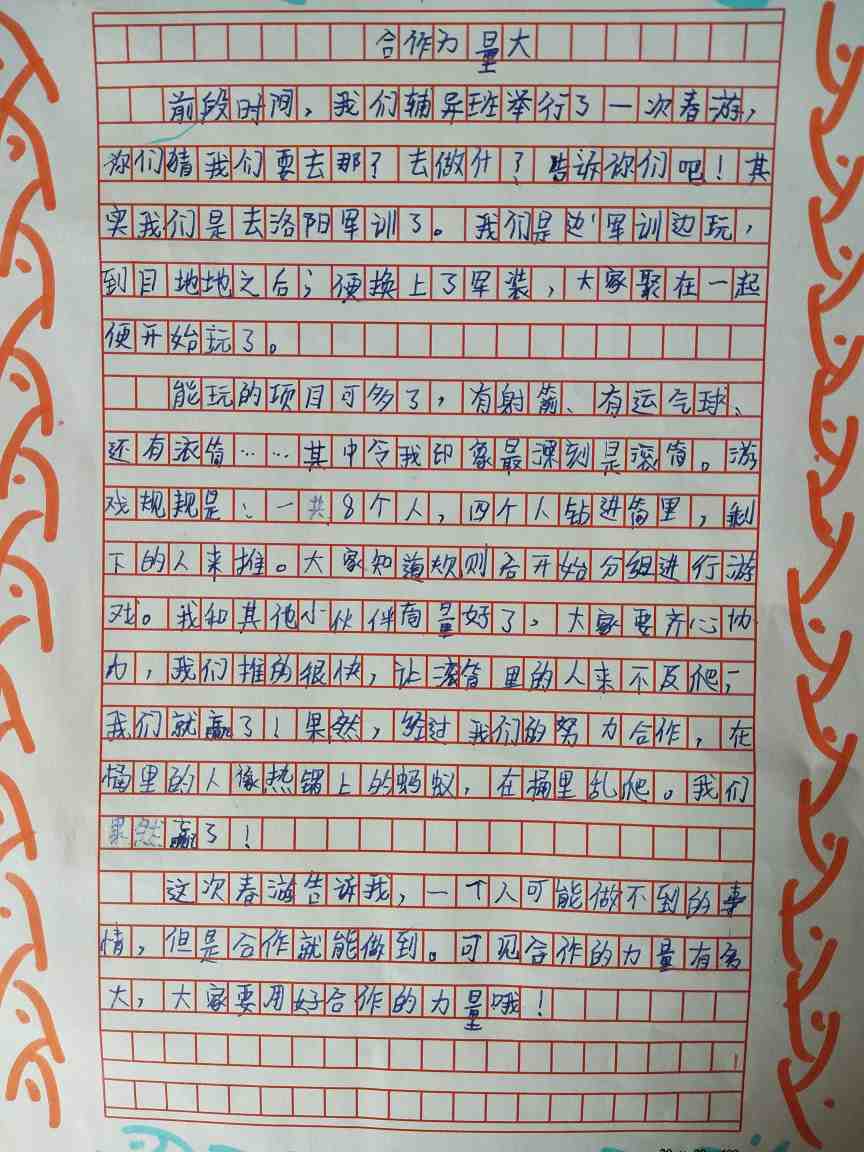 合作力量大
前段时间，我们辅导班举行了一次春游，
你们猜我们要去那？去做什？告诉你们吧！其
实我们是去洛阳军训了。我们是边军训边玩，
到目地地之后；便换上了军装，大家聚在一起
便开始玩了。
能玩的项目可多了，有射箭、有运气球、
还有滚筒……其中令我印象最深刻是滚筒。游
戏规规是：一共8个人，四个人钻进筒里，剩
下的人来推。大家知道规则后开始分组进行游
戏。我和其他小伙伴商量好了，大家要齐心协
力，我们推的很快，让滚筒里的人来不及爬，
我们就赢了！果然，经过我们的努力合作，在
桶里的人像热锅上的蚂蚁，在桶里乱爬。我们
果然赢了！
这次春游告诉我，一个人可能做不到的事
情，但是合作就能做到。可见合作的力量有多
大，大家要用好合作的力量哦！